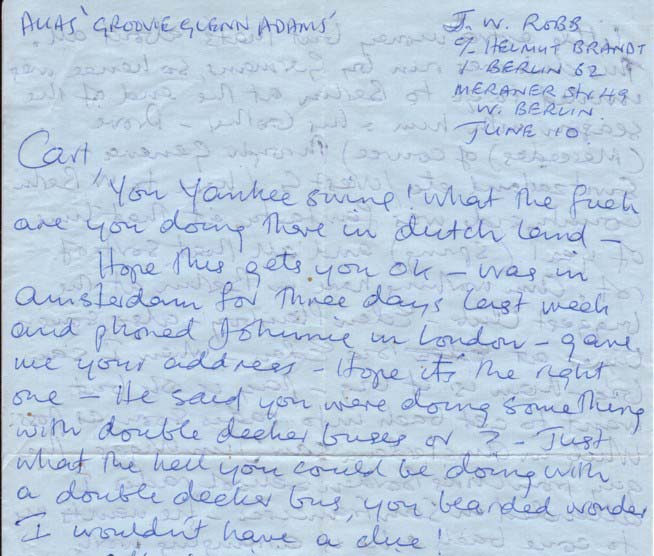 ALIAS 'GROOVIE GLENN ADAMS'
J. W. ROBB
c/o HELMUT BRANDT
1 BERLIN 62
MERANER Str 49
W. BERLIN
JUNE 10.
Carl
You Yankee swine! what the fuck
are you doing there in dutch land -
Hope this gets you OK - was in
amsterdam for three days last week
and phoned Johnnie in London - gave
me your address - Hope it's the right
one - He said you were doing something
with double decker buses or ? - Just
what the hell you could be doing with
a double decker bus, you bearded wonder
I wouldn't have a clue!